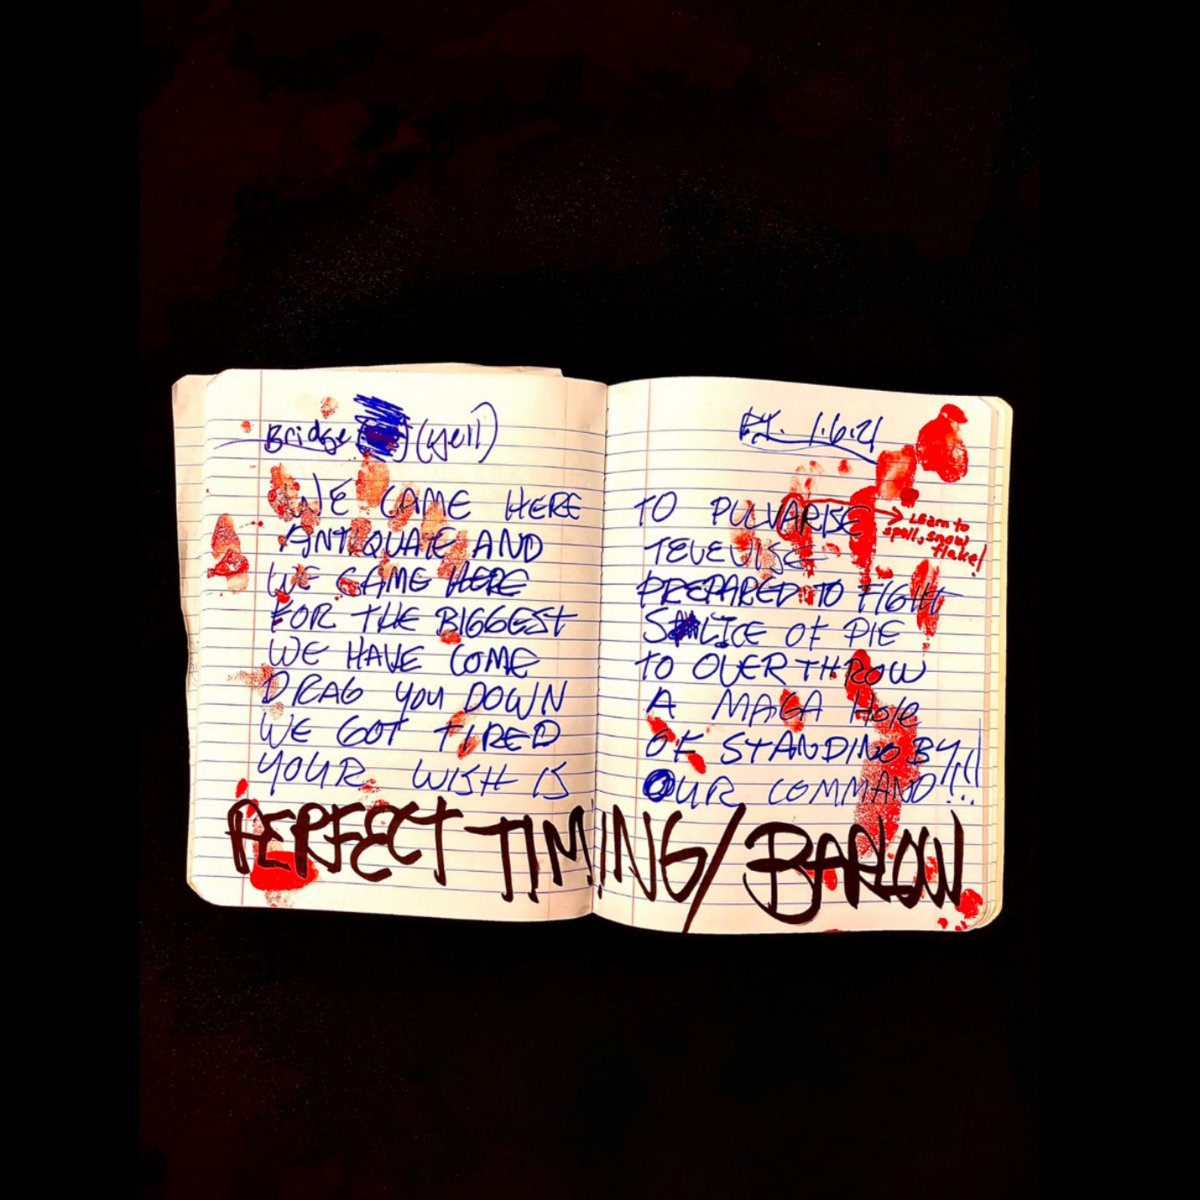 Bridge (yell)
1.6.21
WE CAME HERE TO PULVARISE
→ Learn to
spell, snow
flake!
ANTIQUATE AND TELEVISE
WE CAME HERE PREPARED TO FIGHT
FOR THE BIGGEST SLICE OF PIE
WE HAVE COME TO OVERTHROW
DRAG YOU DOWN A MAGA Hole
WE GOT TIRED OF STANDING BY!!!
YOUR WISH IS OUR COMMAND!!!
PERFECT TIMING/BARLOW